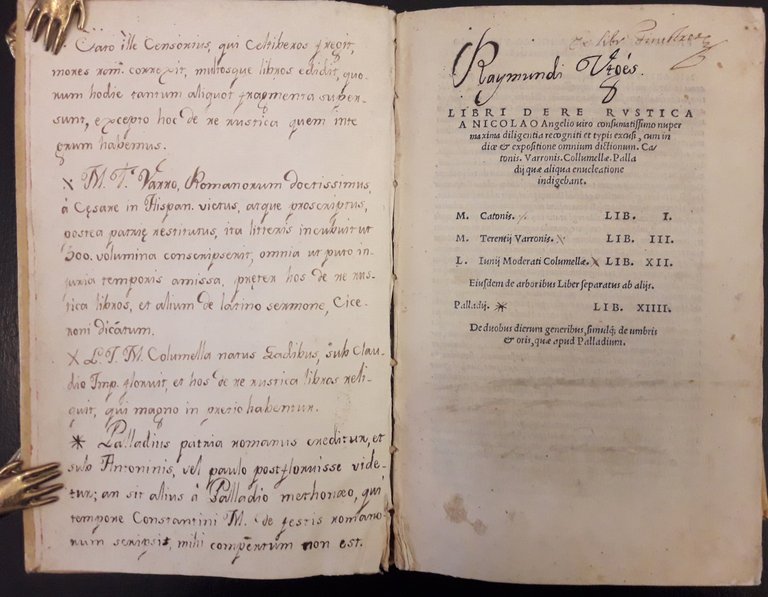 Cato ille Censorius, qui Celtiberos fregit,
mores rom. correxit, multosque libros edidit, quo-
rum hodie tantum aliquot fragmenta super-
sunt, excepto hoc de re rustica quem inte
grum habemus.
X M. T. Varro, Romanorum doctissimus,
à Cęsare in Hispan. victus, atque proscriptus,
postea patrię restitutus, ita litteris incubuit ut
500. volumina conscripserit, omnia ut puto in-
juria temporis amissa, pręter hos de re rus-
tica libros, et alium de latino sermone, Cice-
roni dicatum.
X L. J. M. Columella natus Gadibus, sub Clau-
dio Imp. floruit, et hos de re rustica libros reli-
quit, qui magno in pretio habentur.
* Palladius patria romanus creditur, et
sub Antoninis, vel paulo post floruisse vide-
tur; an sit alius à Palladio methonæo, qui
tempore Constantini M. de festis romano-
rum scripsit, mihi compertum non est.
Ex libr.
Raymundi
LIBRI DE RE RVSTICA
A NICOLAO Angelio uiro consumatissimo nuper
maxima diligentia recogniti et typis excusi, cum in
dice & expositione omnium dictionum. Ca
tonis. Varronis. Collumellæ. Palla
dij quæ aliqua enucleatione
indigebant.
M. Catonis. LIB. I.
M. Terentij Varronis. X LIB. III.
L. Iunij Moderati Columellæ X LIB. XII.
Eiusdem de arboribus Liber separatus ab alijs.
Palladij. * LIB. XIIII.
De duobus dierum generibus, simulq; de umbris
& oris, quæ apud Palladium.